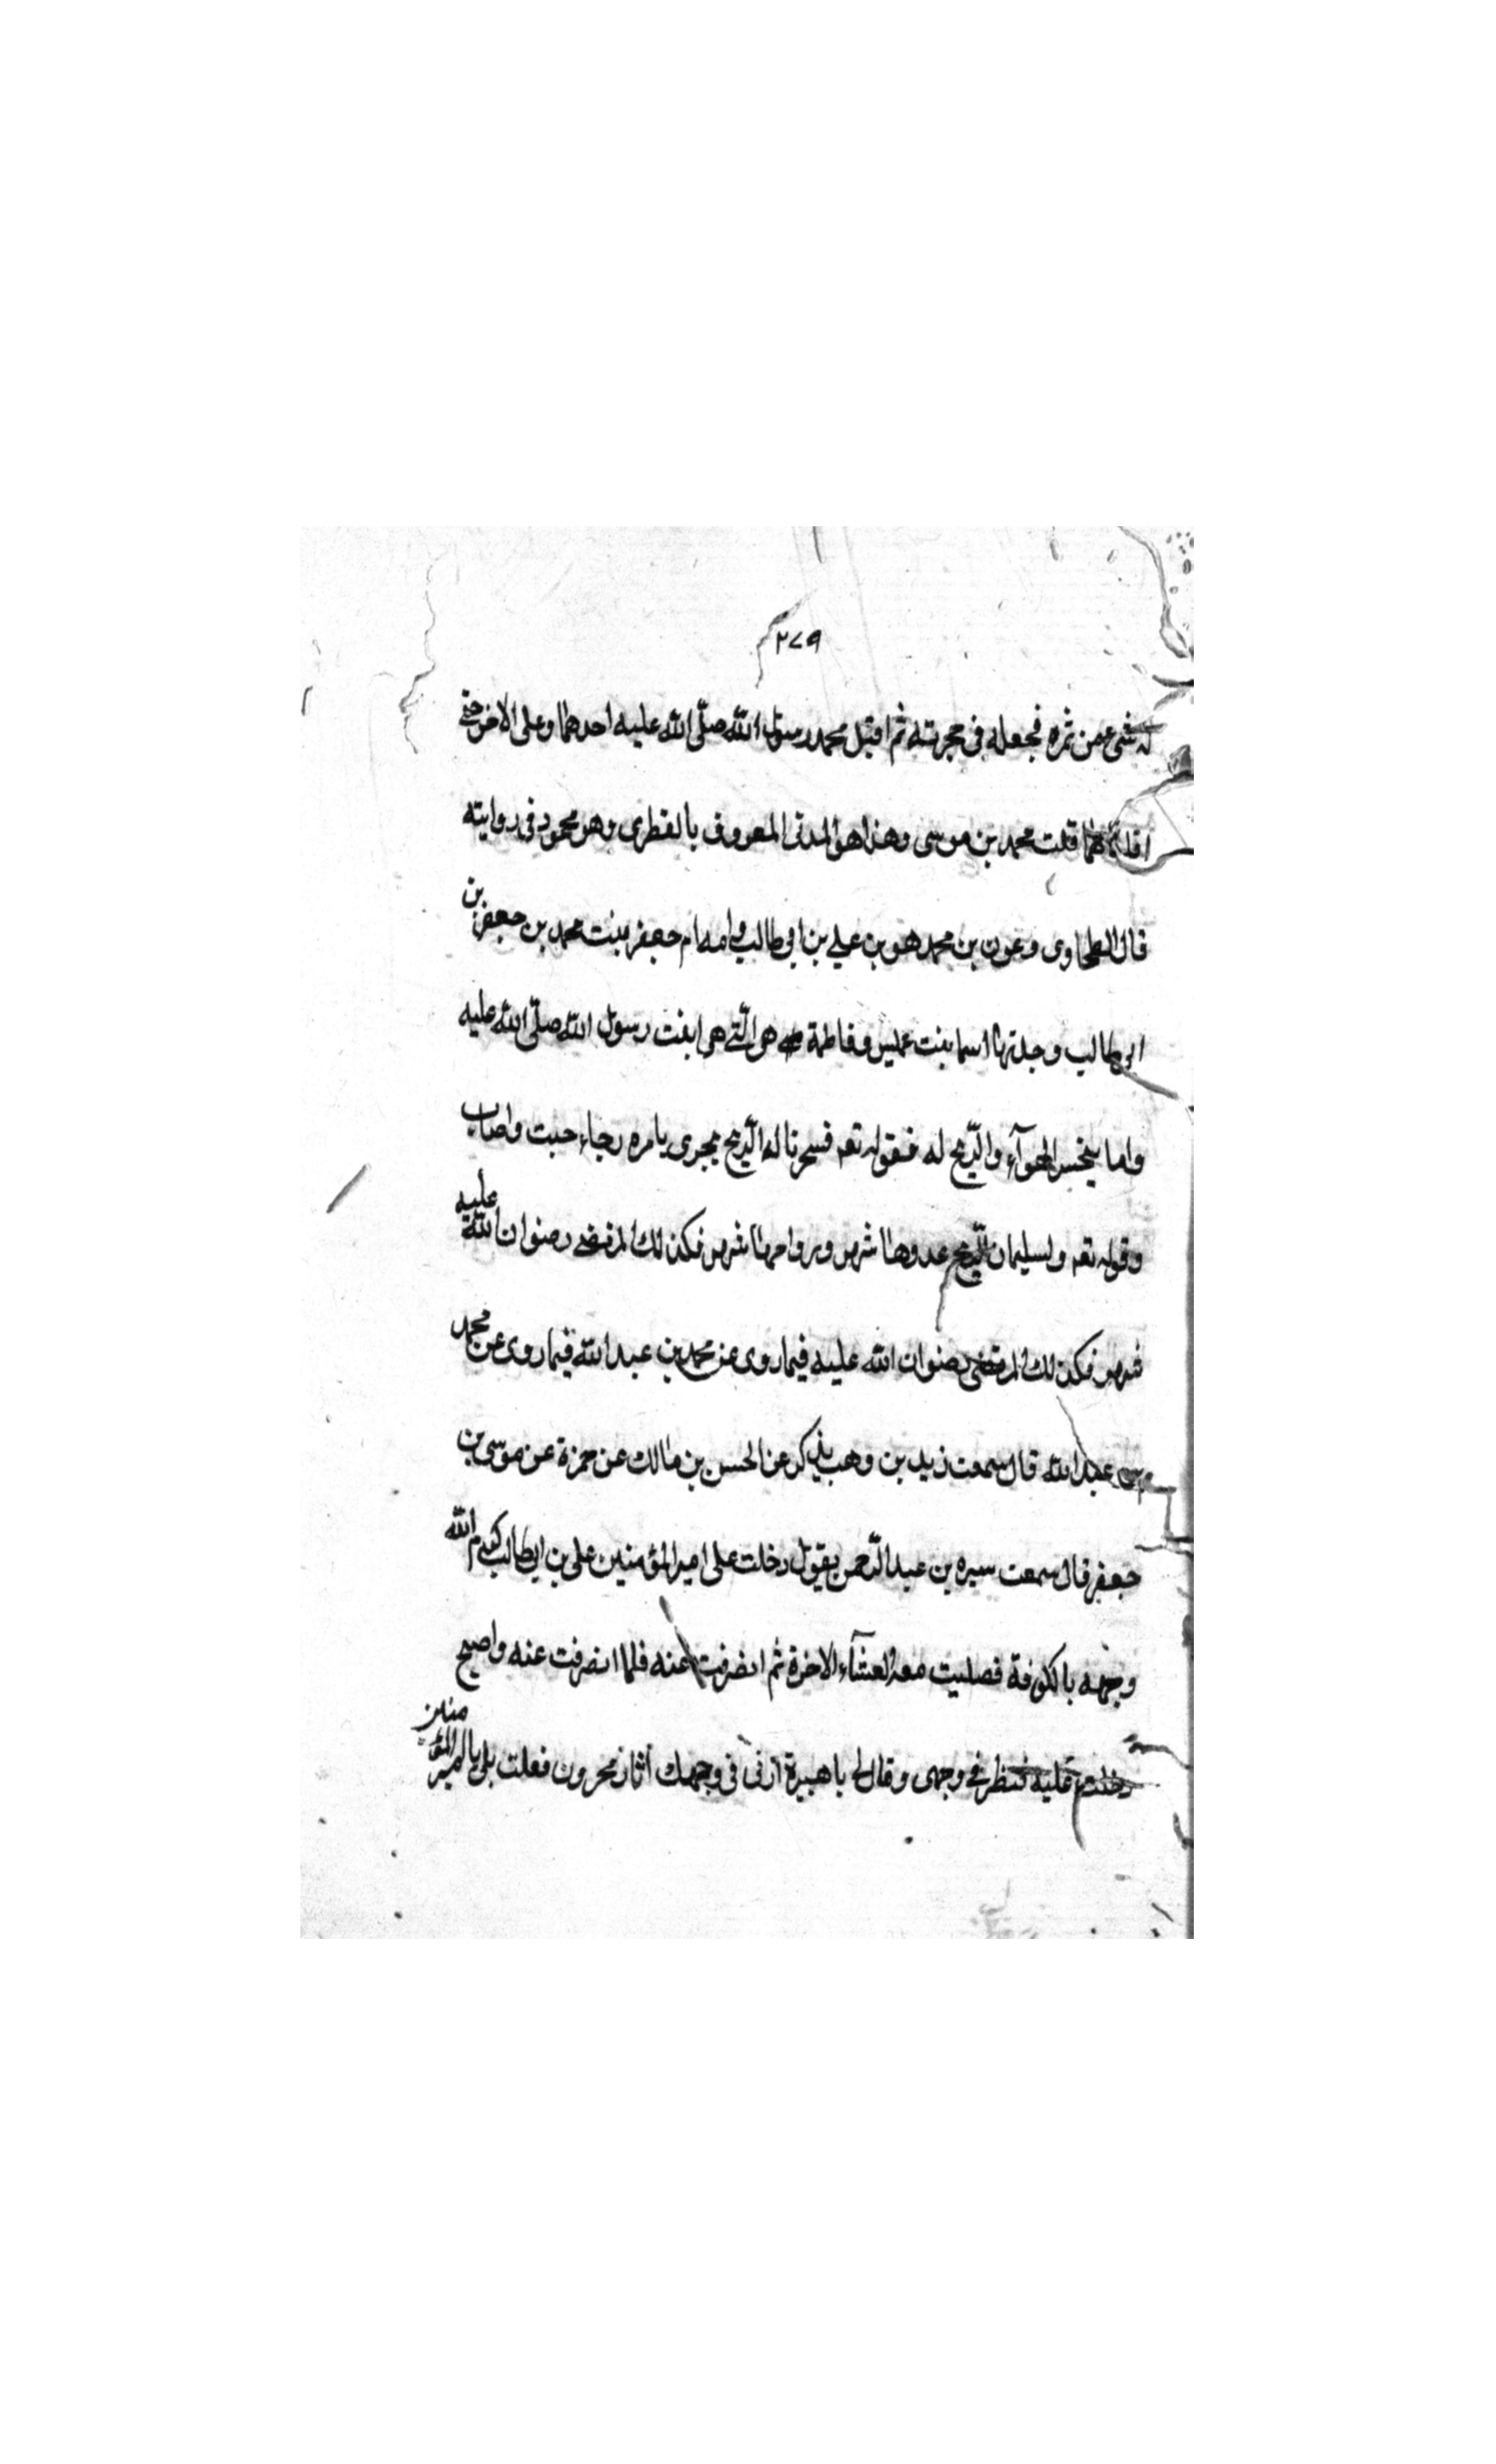 ٢٧٩
له شىء من ثمره فجعله فى حجرته ثم اقبل محمد رسول الله صلّى الله عليه احدهما وعلى الاخر حتى
قلت محمد بن موسى وهذا هو المدنى المعروف بالفطرى وهو محمود فى روايته
قال الطحاوى وعون بن محمد هو بن على بن ابى طالب وامه ام جعفر بنت محمد بن جعفر بن
ابى طالب وجدتها اسما بنت عميس وفاطمة هى الّتى هى ابنت رسول الله صلّى الله عليه
واما الهوآء والرّيح له فقوله تعه فسخرنا له الرّيح تجرى بامره رخاء حيث واصاب
وقوله تعه ولسليمان الرّيح عدوها شهر ورواحها شهر فكذلك المرتضى رضوان الله عليه
شهر فكذلك المرتضى رضوان الله عليه فيما روى عن محمد بن عبد الله فيما روى عن محمد
بن عبد الله قال سمعت زيد بن وهب يذكر عن الحسن بن مالك عن حمزة عن موسى بن
جعفر قال سمعت سيره بن عبد الرّحمن يقول دخلت على امير المؤمنين على بن ابيطالب كرم الله
وجهه بالكوفة فصليت معه العشآء الاخرة ثم انصرفت عنه فلما انصرفت عنه واصبح
دخلت عليه فنظر فى وجهى وقال لى يا هبيرة ارى فى وجهك اثار محزون فعلت بلى يا امير المؤمنين